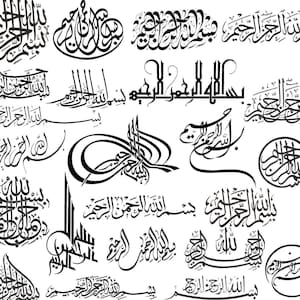 بسم الله الرحمن الرحيم
بسم الله الرحمن الرحيم
بسم الله الرحمن الرحيم
بسم الله الرحمن الرحيم
بسم الله الرحمن الرحيم
بسم الله الرحمن الرحيم
بسم الله الرحمن الرحيم
بسم الله الرحمن الرحيم
بسم الله الرحمن الرحيم
بسم الله الرحمن الرحيم
بسم الله الرحمن الرحيم
بسم الله الرحمن الرحيم
بسم الله الرحمن الرحيم
بسم الله الرحمن الرحيم
بسم الله الرحمن الرحيم
بسم الله الرحمن الرحيم
بسم الله الرحمن الرحيم
بسم الله الرحمن الرحيم
بسم الله الرحمن الرحيم
بسم الله الرحمن الرحيم